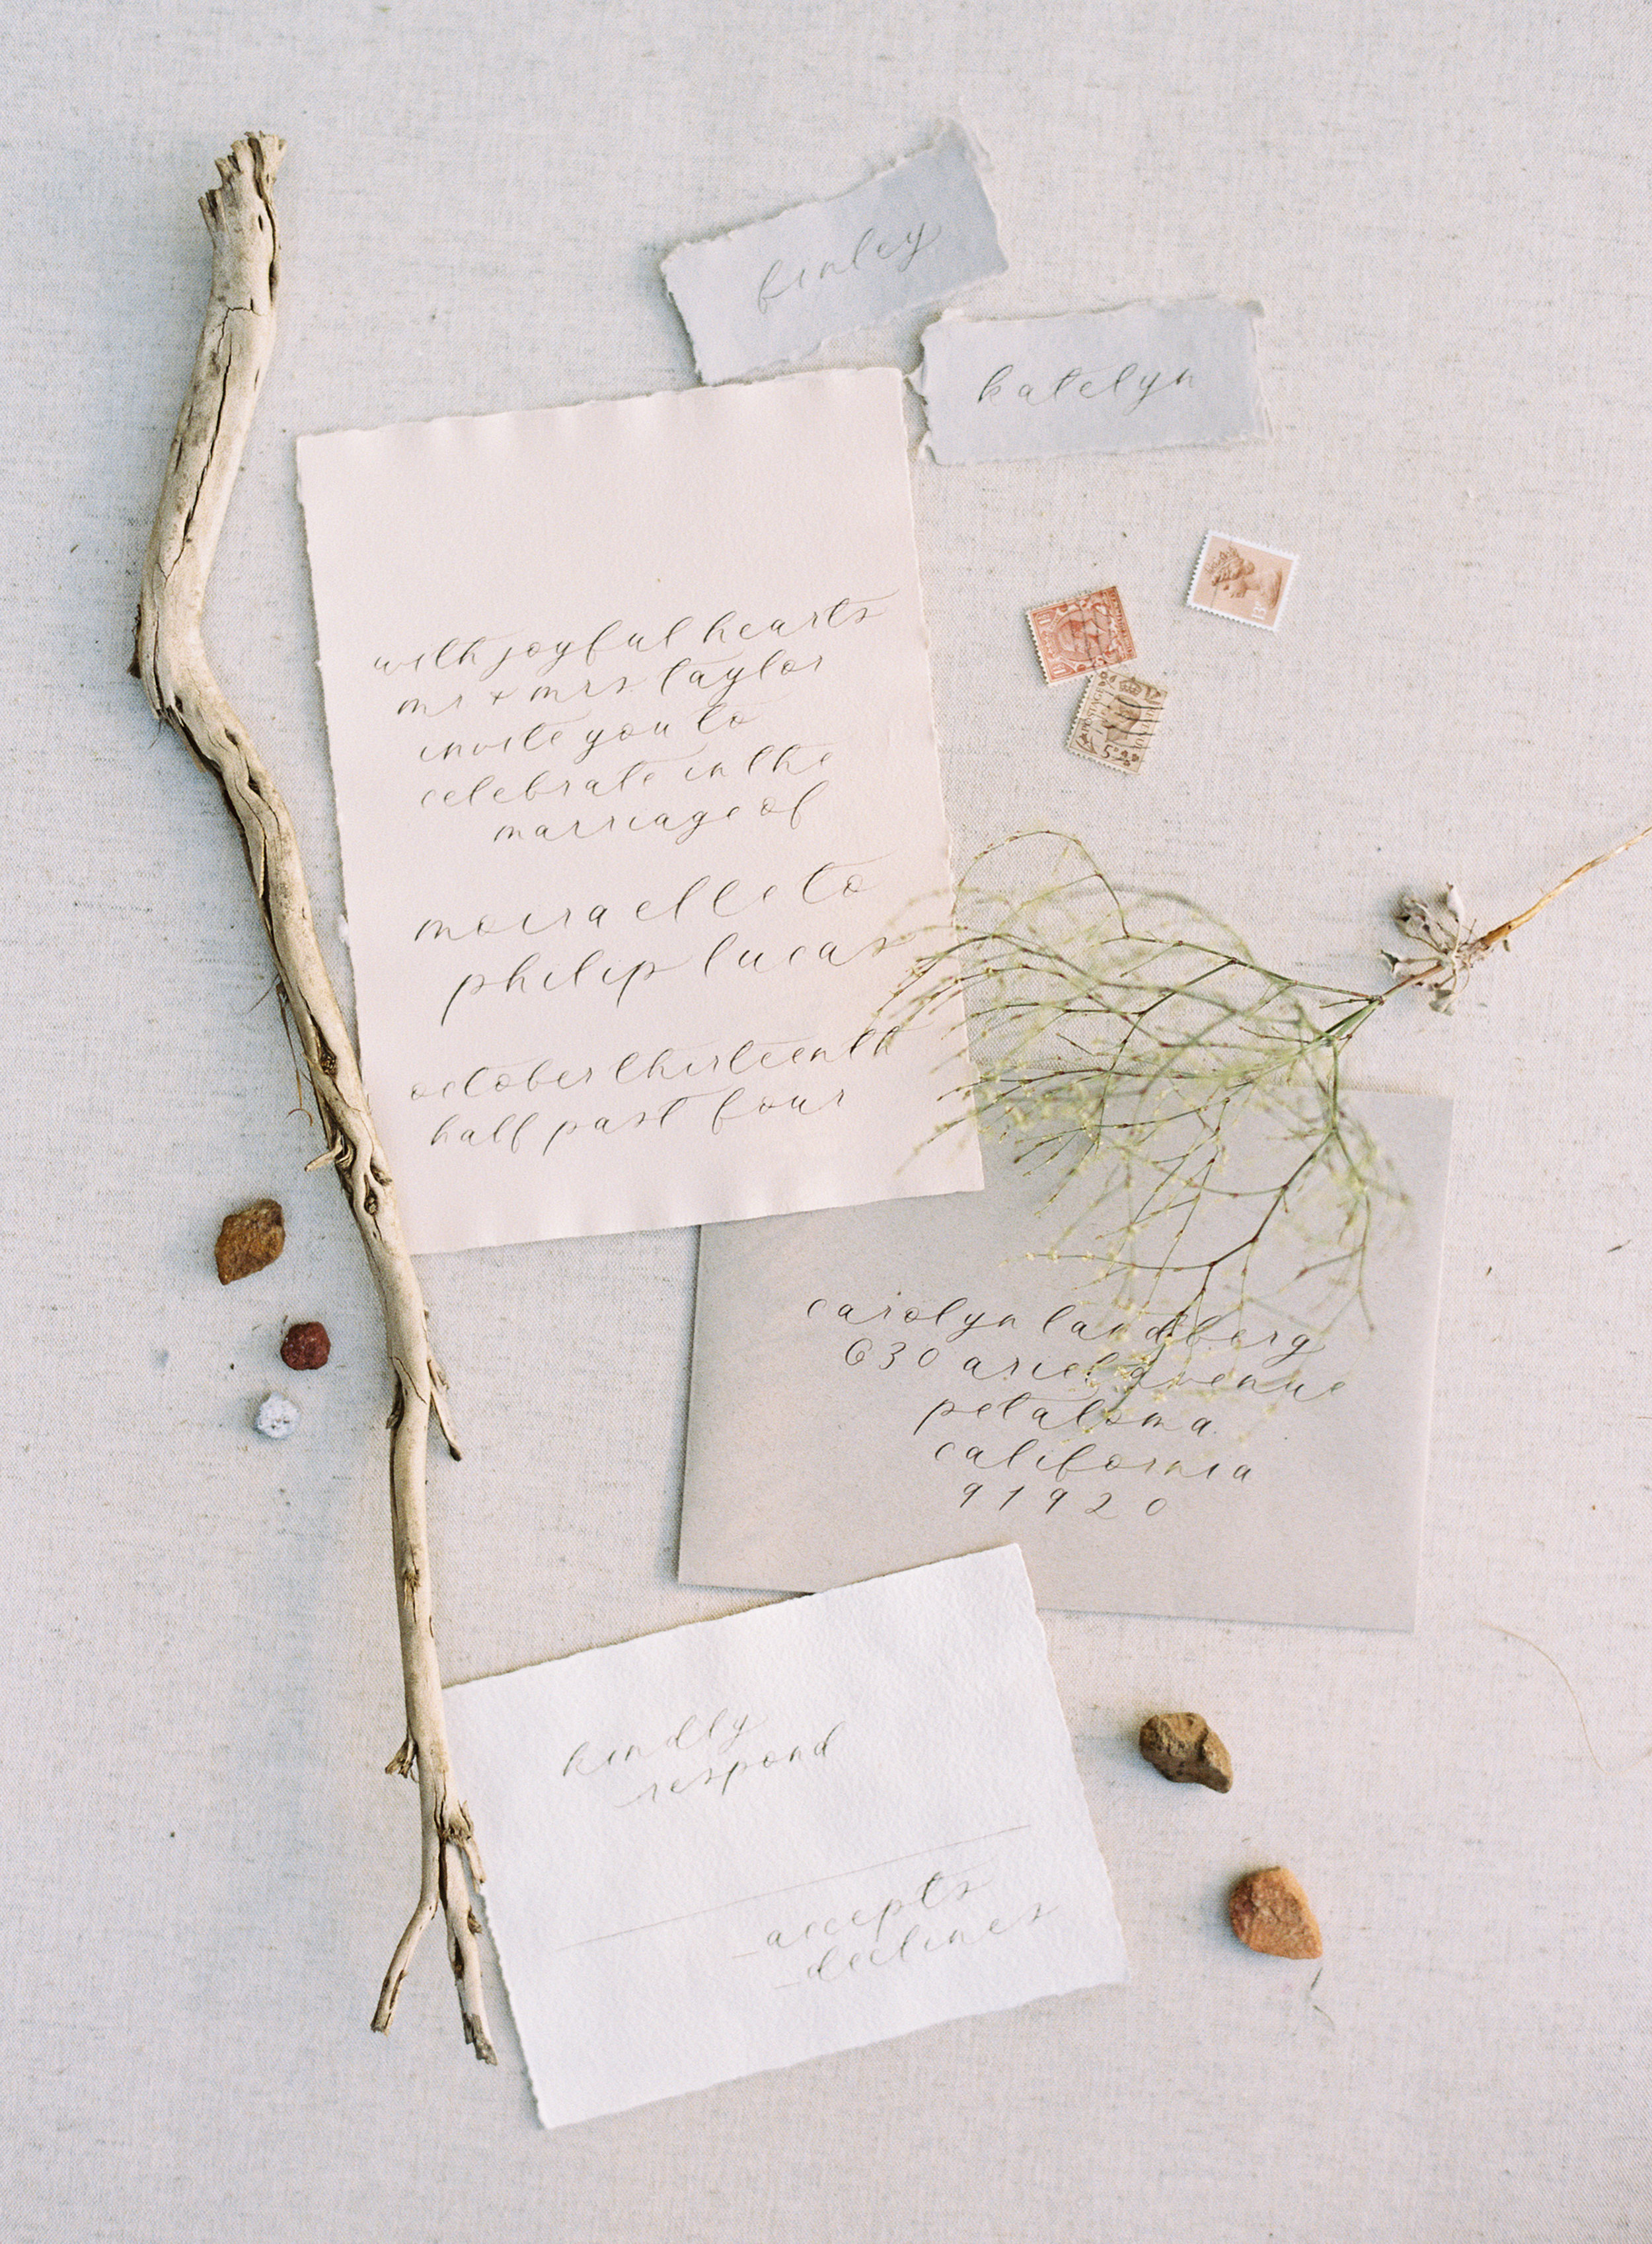 finley
katelyn
with joyful hearts
mr + mrs. taylor
invite you to
celebrate in the
marriage of
moira elle to
philip lucas
october thirteenth
half past four
13
POSTAGE
carolyn landberg
630 ariel avenue
petaloma
california
91920
kindly
respond
_accepts
_declines